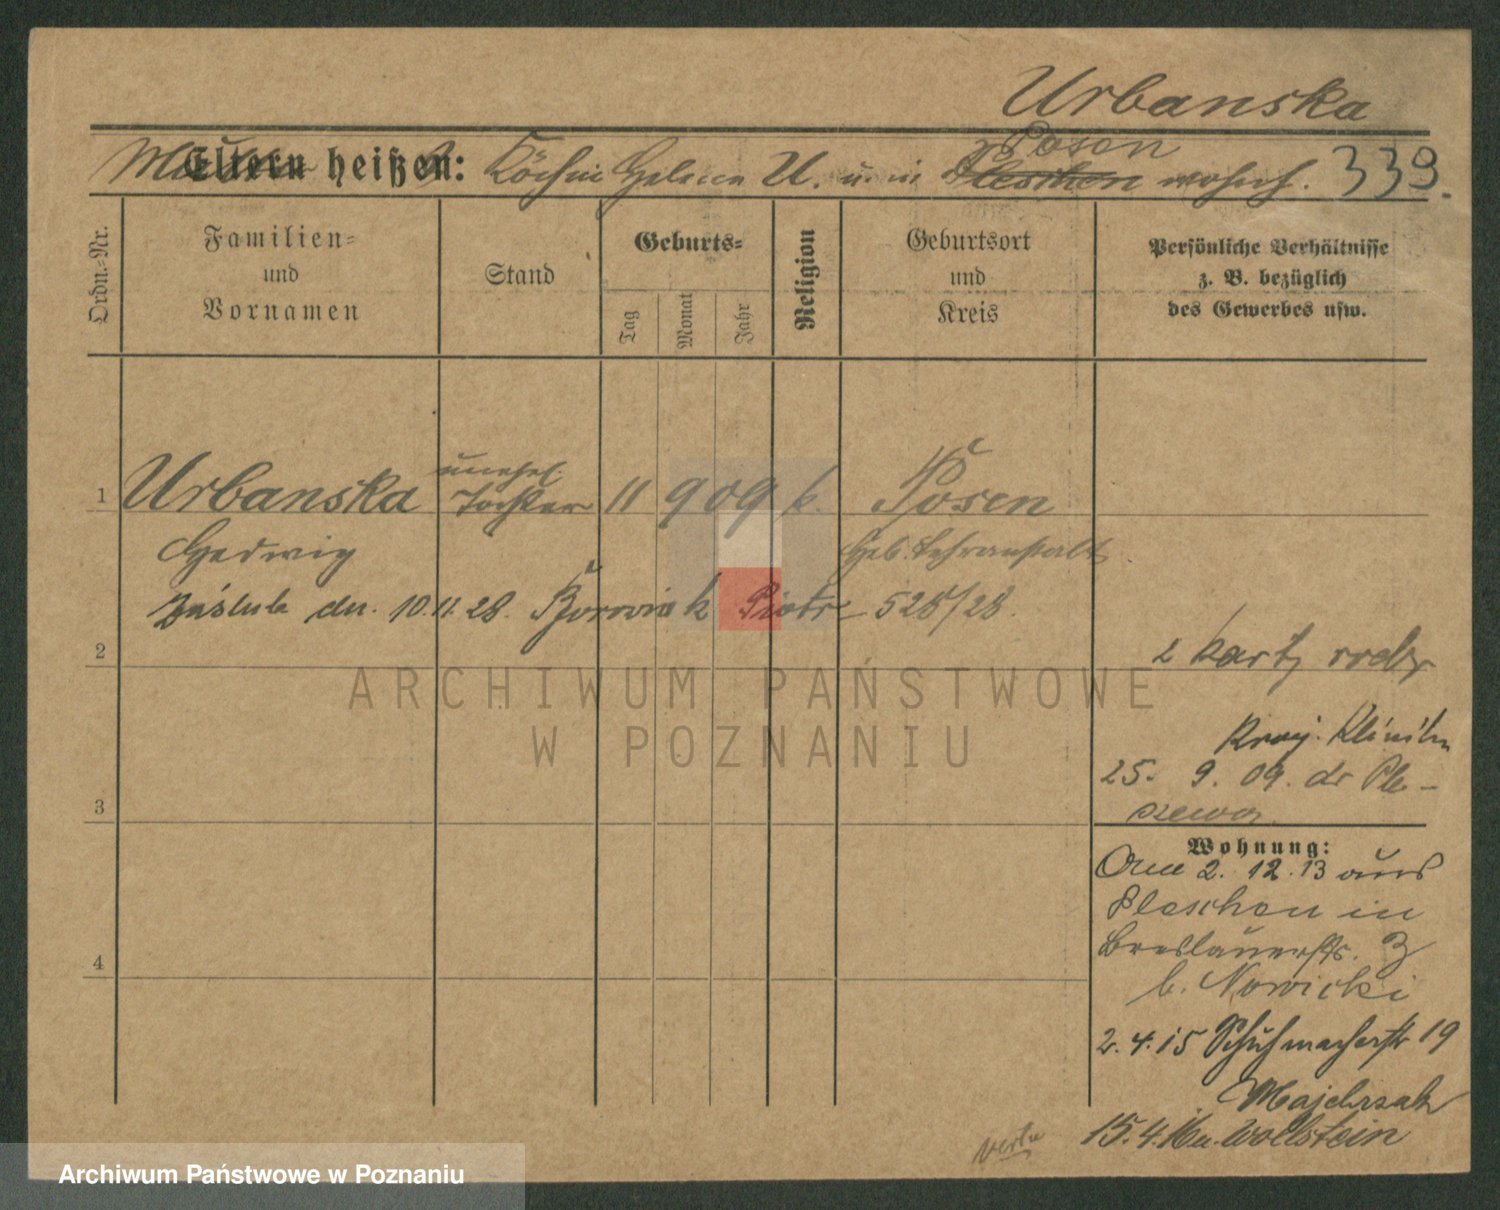 Urbanska
Posen
Mutter Eltern heißen: Köchin Helena U. u. in Pleschen wohnh. 339.
Ordn.-Nr.
Familien-
und
Vornamen
Stand
Geburts-
Tag
Monat
Jahr
Religion
Geburtsort
und
Kreis
Persönliche Verhältnisse
z. B. bezüglich
des Gewerbes usw.
unehel.
1 Urbanska Tochter 11 9 09 k. Posen
Hedwig Heb. Lehranstalt
dn. 10.11.28. Piotr 528/28.
2
2 karty
Kraj. Klinika
25. 9. 09. do Ple-
szewa
3
Wohnung:
Am 2. 12. 13 aus
Pleschen in
Breslauerstr. 3
b. Nowicki
4
2. 4. 15 Schuhmacherstr 19
Majchrzak
15. 4. 16 n. Wollstein
verte
ARCHIWUM PAŃSTWOWE
W POZNANIU
Archiwum Państwowe w Poznaniu